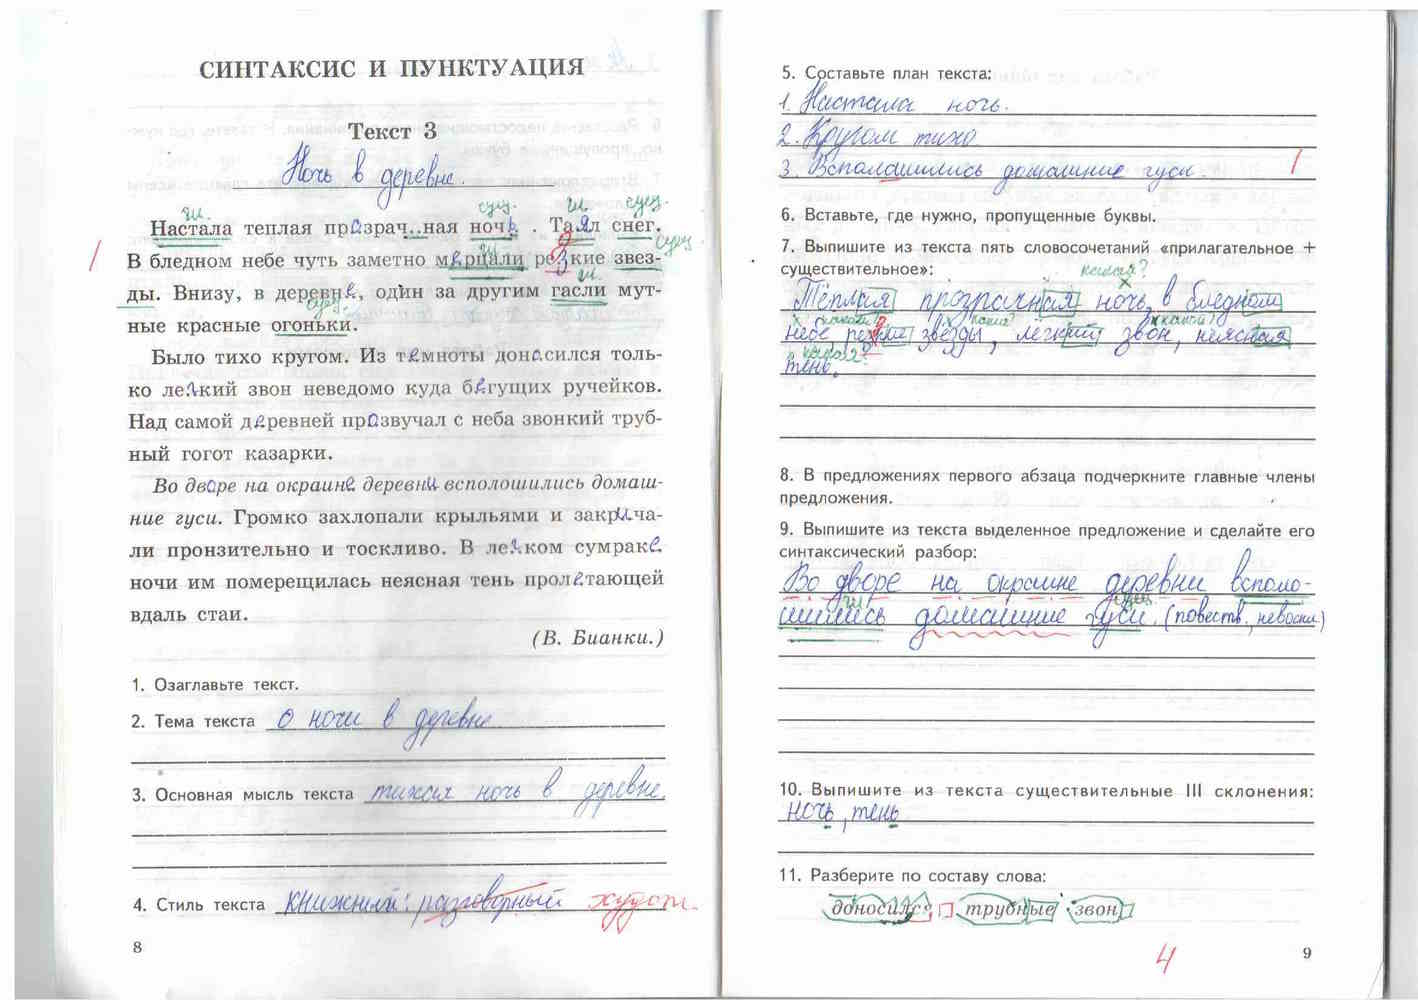 СИНТАКСИС И ПУНКТУАЦИЯ
Текст 3
Ночь в деревне.
гл. сущ. гл. сущ.
Настала теплая прозрач..ная ночь . Таял снег.
гл. сущ.
В бледном небе чуть заметно мерцали резкие звез-
гл.
ды. Внизу, в деревне, один за другим гасли мут-
сущ.
ные красные огоньки.
Было тихо кругом. Из темноты доносился толь-
ко легкий звон неведомо куда бегущих ручейков.
Над самой деревней прозвучал с неба звонкий труб-
ный гогот казарки.
Во дворе на окраине деревни всполошились домаш-
ние гуси. Громко захлопали крыльями и закрича-
ли пронзительно и тоскливо. В легком сумраке
ночи им померещилась неясная тень пролетающей
вдаль стаи.
(В. Бианки.)
1. Озаглавьте текст.
2. Тема текста о ночи в деревне
3. Основная мысль текста тихая ночь в деревне
4. Стиль текста книжный: разговорный худож.
8
5. Составьте план текста:
1. Настала ночь.
2. Кругом тихо
3. Всполашились домашние гуси
6. Вставьте, где нужно, пропущенные буквы.
7. Выпишите из текста пять словосочетаний «прилагательное +
существительное»:
какая?
Тёплая прозрачная ночь, в бледном
каком? какие? какой?
небе, резкие звёзды, легкий звон, неясная
какая?
тень.
8. В предложениях первого абзаца подчеркните главные члены
предложения.
9. Выпишите из текста выделенное предложение и сделайте его
синтаксический разбор:
Во дворе на окраине деревни всполо-
гл. сущ.
шились домашние гуси. (повеств., невоскл.)
10. Выпишите из текста существительные III склонения:
ночь, тень
11. Разберите по составу слова:
доносился трубные звон
4
9